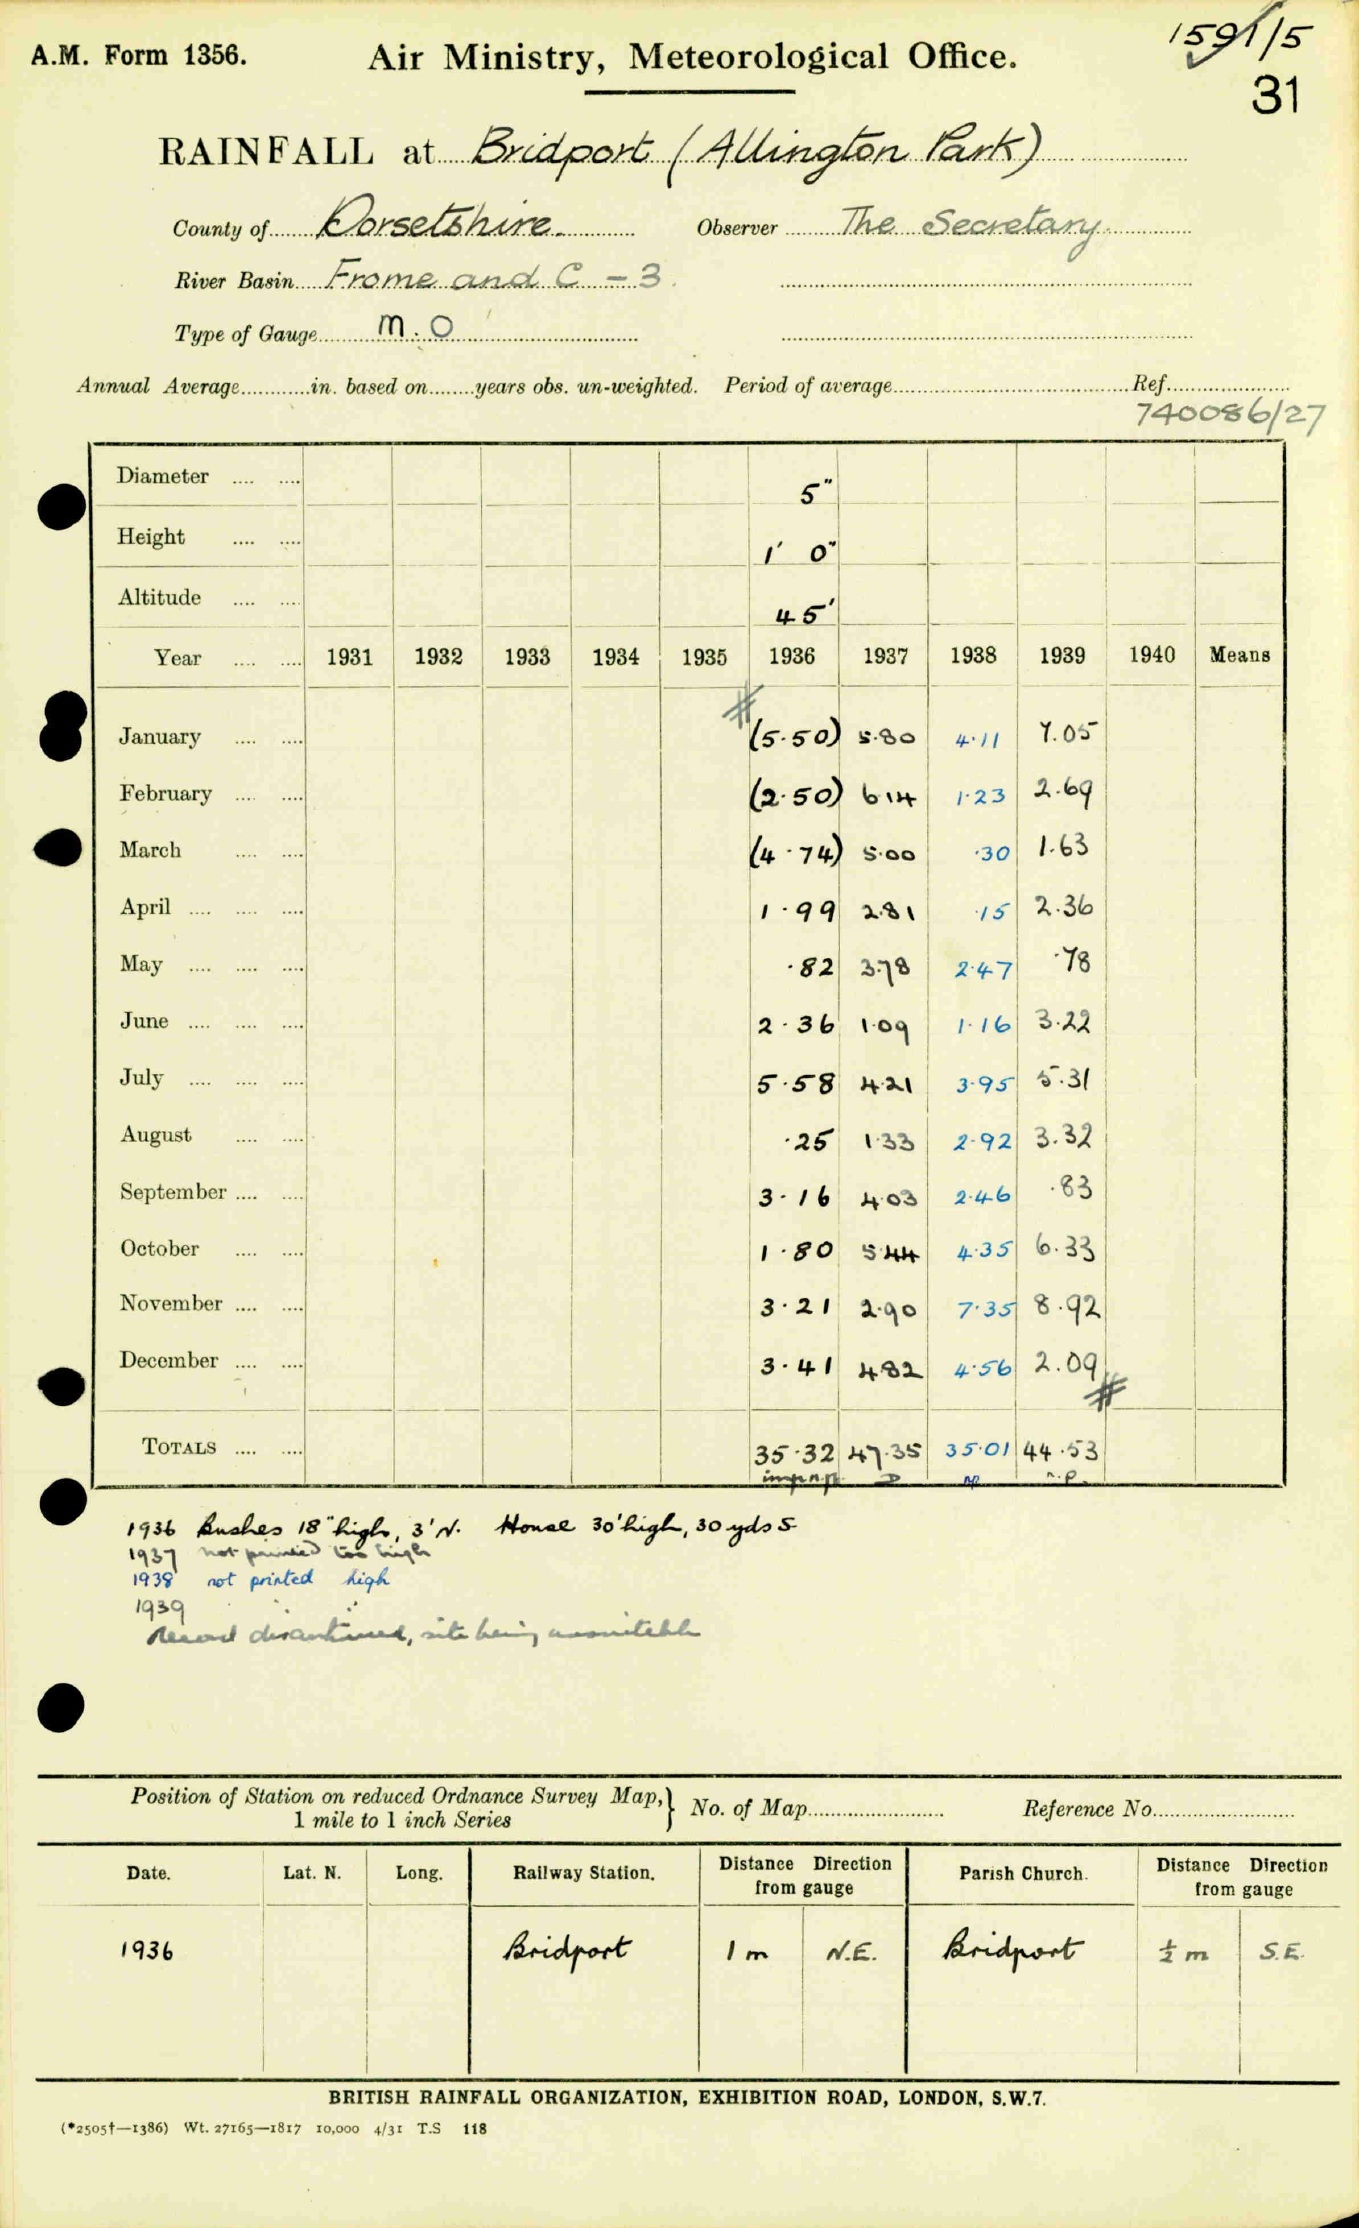 A.M. Form 1356. Air Ministry, Meteorological Office. 1591/5
31
RAINFALL at Bridport (Allington Park)
County of Dorsetshire. Observer The Secretary.
River Basin Frome and C - 3
Type of Gauge M.O
Annual Average............in. based on........years obs. un-weighted. Period of average............ Ref............
740086/27
Diameter .... .... 5"
Height .... .... 1' 0"
Altitude .... .... 45'
Year .... .... 1931 1932 1933 1934 1935 1936 1937 1938 1939 1940 Means
January .... .... (5.50) 5.80 4.11 7.05
February .... .... (2.50) 6.14 1.23 2.69
March .... .... (4.74) 5.00 .30 1.63
April .... .... .... 1.99 2.81 .15 2.36
May .... .... .... .82 3.78 2.47 .78
June .... .... .... 2.36 1.09 1.16 3.22
July .... .... .... 5.58 4.21 3.95 5.31
August .... .... .25 1.33 2.92 3.32
September .... .... 3.16 4.03 2.46 .83
October .... .... 1.80 5.44 4.35 6.33
November .... .... 3.21 2.90 7.35 8.92
December .... .... 3.41 4.82 4.56 2.09
TOTALS .... .... 35.32 47.35 35.01 44.53
np n.p.
1936 Bushes 18" high, 3' N. House 30' high, 30 yds S
1937 not printed too high
1938 not printed high
1939 " "
Record discontinued, site being unsuitable
Position of Station on reduced Ordnance Survey Map, } No. of Map............ Reference No............
1 mile to 1 inch Series
Date. Lat. N. Long. Railway Station. Distance Direction from gauge Parish Church. Distance Direction from gauge
1936 Bridport 1 m N.E. Bridport ½ m S.E.
BRITISH RAINFALL ORGANIZATION, EXHIBITION ROAD, LONDON, S.W.7.
(*2505†—1386) Wt. 27165—1817 10,000 4/31 T.S 118